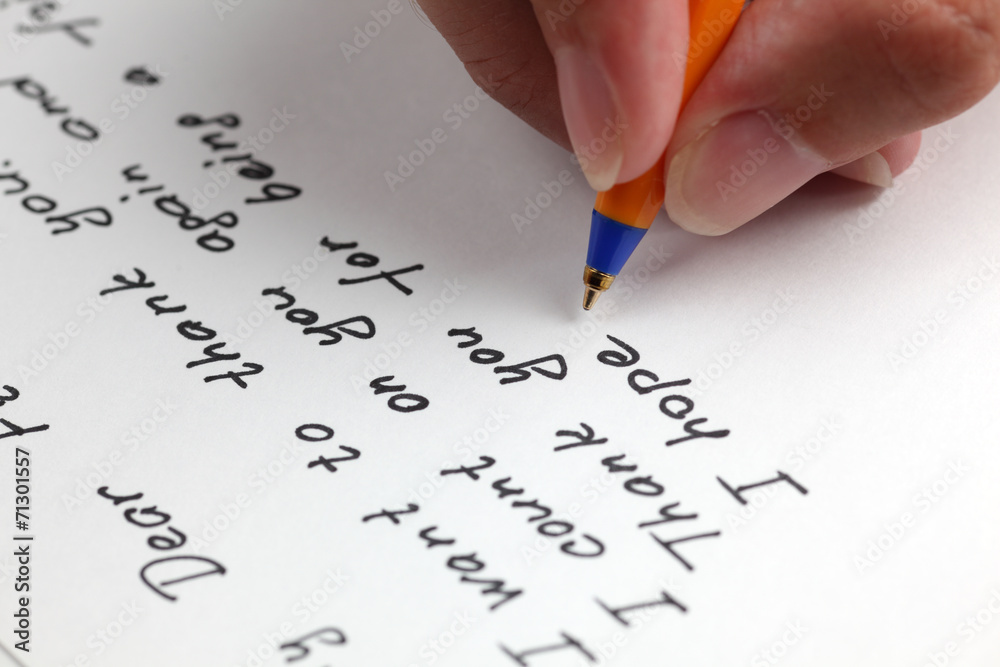 Dear
I want to thank you.
I count on you again and
Thank you for being a
I hope
Adobe Stock | #71301557